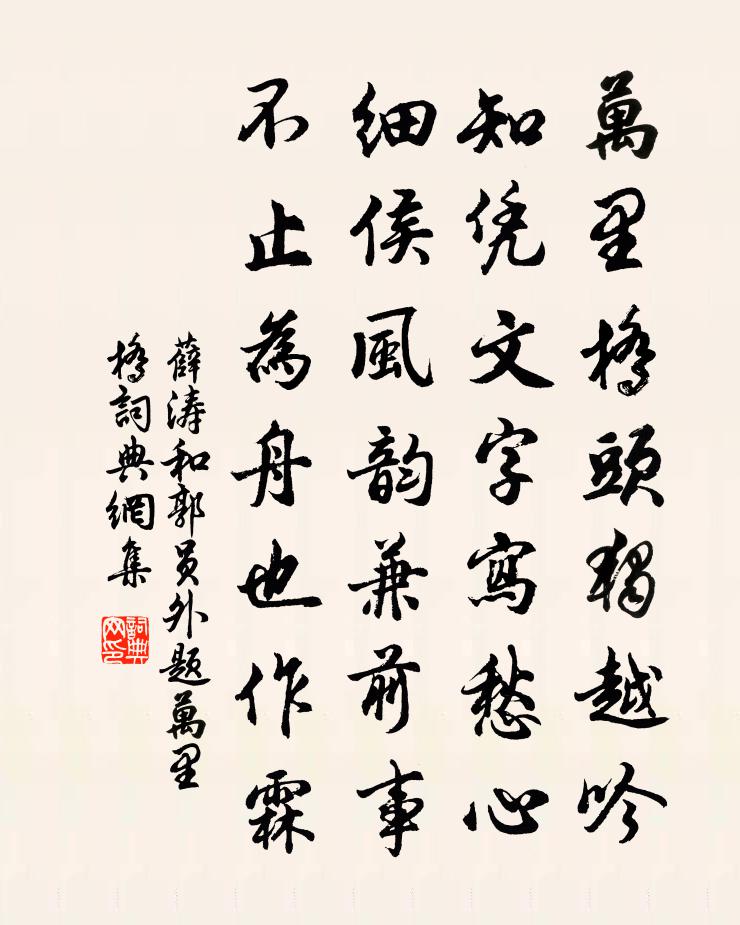 萬里橋頭獨越吟
知凭文字寫愁心
細侯風韵兼前事
不止為舟也作霖
薛涛和郭员外题萬里
橋詞典網集
詞典
网印